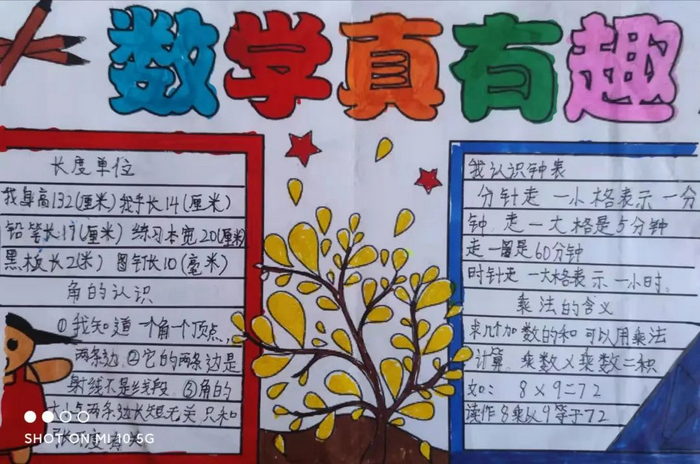 数学真有趣
长度单位
我身高132(厘米)我手长14(厘米)
铅笔长17(厘米) 练习本宽20(厘米)
黑板长2(米) 图钉长10(毫米)
角的认识
①我知道一个角一个顶点,
两条边.②它的两条边是
射线不是线段.③角的
两条边长短无关只和
我认识钟表
分针走一小格表示一分
钟,走一大格是5分钟
走一圈是60分钟
时针走一大格表示一小时.
乘法的含义
求几个加数的和可以用乘法
计算.乘数×乘数=积
如: 8×9=72
读作8乘以9等于72
SHOT ON MI 10 5G